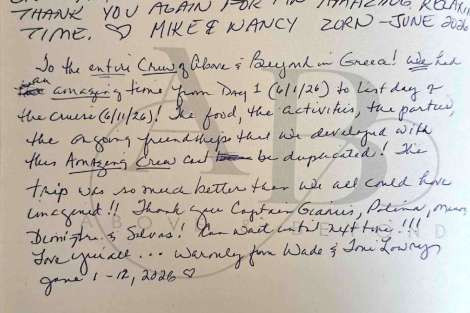 THANK YOU AGAIN FOR AN AMAZING, RELAXING
TIME. ♡ MIKE & NANCY ZORN - JUNE 2026
To the entire Crew of Above & Beyond in Greece! We had
an amazing time from Day 1 (6/1/26) to last day of
the cruise (6/11/26)! The food, the activities, the parties,
the ongoing friendships that we developed with
this Amazing Crew cant be duplicated! The
trip was so much better than we all could have
imagined!! Thank you Captain
& Silvas! Can wait until next time!!!
Love you all... Warmly from Wade & Toni Lowry
June 1-12, 2026 ♡
AB
ABOVE & BEYOND